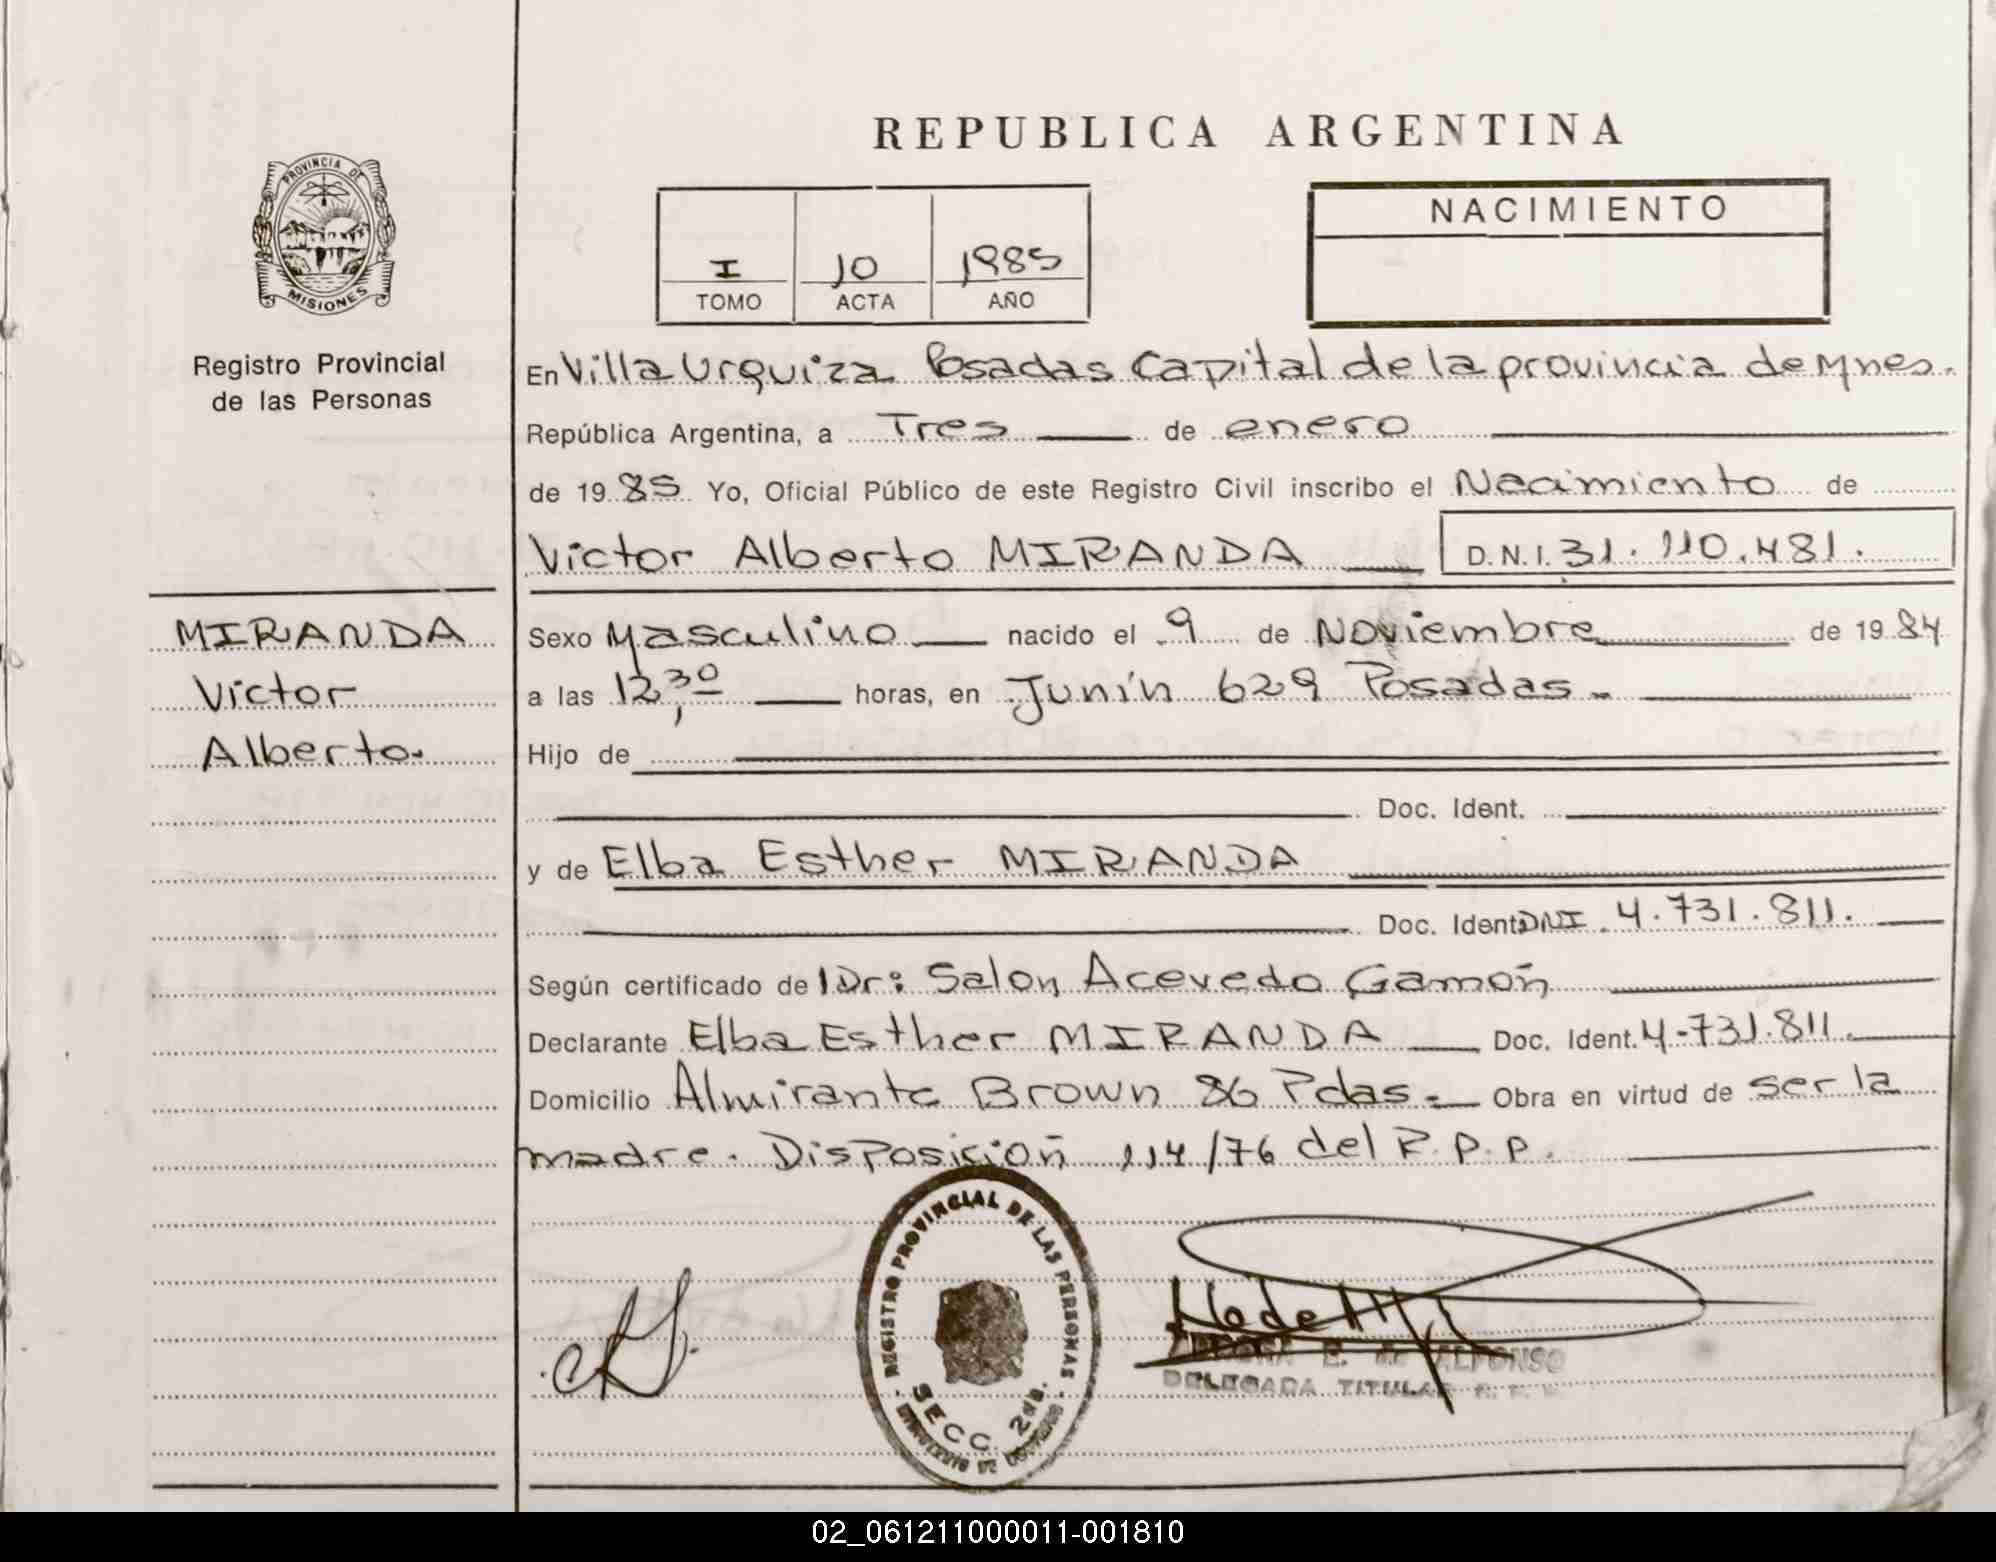 REPUBLICA ARGENTINA
PROVINCIA DE
MISIONES
Registro Provincial
de las Personas
I 10 1985
TOMO ACTA AÑO
NACIMIENTO
En Villa Urquiza Posadas Capital de la provincia de Mnes.
República Argentina, a Tres de enero
de 1985 Yo, Oficial Público de este Registro Civil inscribo el Nacimiento de
Victor Alberto MIRANDA D.N.I. 31.110.481.
MIRANDA
Victor
Alberto.
Sexo Masculino nacido el 9 de Noviembre de 1984
a las 12,30 horas, en Junín 629 Posadas.
Hijo de
Doc. Ident.
y de Elba Esther MIRANDA
Doc. Ident DNI. 4.731.811.
Según certificado de l Dr: Salon Acevedo Gamón
Declarante Elba Esther MIRANDA Doc. Ident. 4-731.811.
Domicilio Almirante Brown 86 Pdas. Obra en virtud de ser la
madre. Disposición 114/76 del R.P.P.
REGISTRO PROVINCIAL DE LAS PERSONAS
SECC. 2da.
E. de ALFONSO
DELEGADA TITULAR
02_061211000011-001810